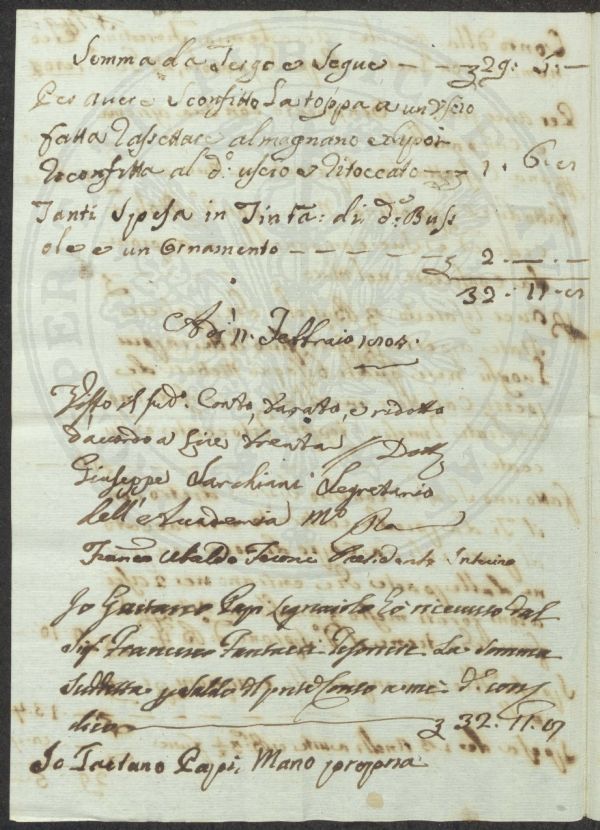 Somma da Tergo e Segue — — 329: 5: —
Per avere Sconfitto La toppa a un Uscio
fatta Rassettare al magnano e di poi
Riconfitta al d.º uscio e Ritoccato — 3 1. 6.
Tanti Spesa in Tinta: di d.e Buss
ole e un Ornamento — — — — — 3 2. —. —
32. 11.
Adì 11. Febbraio
Visto il sud.º Conto, tarato, e ridotto
d'accordo a Lire trenta Dott.
Giuseppe Sarchiani Segretario
dell'Accademia M.º P.ia
Franc.º Ubaldo Presidente Interino
Io Gaetano Papi Legnaiolo ò ricevuto dal
Sig.r Francesco Fantacci Tesoriere La Somma
Suddetta p. saldo del pred.º Conto a me d.º con
dico 3 32. 11.
Io Gaetano Papi Mano propria